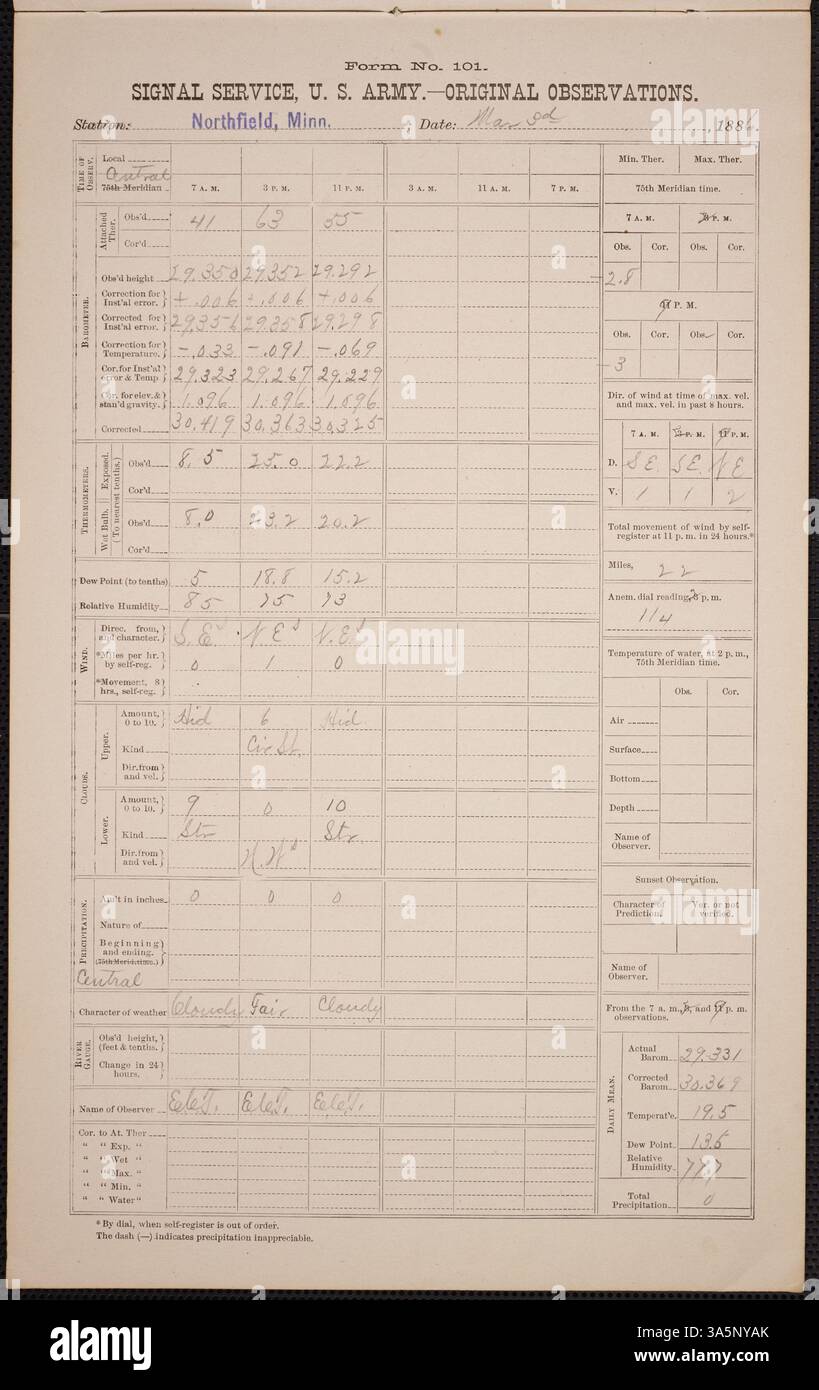 Form No. 101.
SIGNAL SERVICE, U. S. ARMY.—ORIGINAL OBSERVATIONS.
Station: Northfield, Minn. ; Date: Mar 3d , 1886.
TIME OF OBSERV. Local
Central
75th Meridian 7 A. M. 3 P. M. 11 P. M. 3 A. M. 11 A. M. 7 P. M.
BAROMETER.
Attached Ther. Obs'd 41 63 55
Cor'd
Obs'd height 29.350 29.352 29.292
Correction for Inst'al error. +.006 +.006 +.006
Corrected for Inst'al error. 29.356 29.358 29.298
Correction for Temperature. -.033 -.091 -.069
Cor. for Inst'al error & Temp 29.323 29.267 29.229
Cor. for elev. & stan'd gravity. 1.096 1.096 1.096
Corrected 30.419 30.363 30.325
THERMOMETERS.
(To nearest tenths.)
Exposed. Obs'd 8.5 25.0 22.2
Cor'd
Wet Bulb. Obs'd 8.0 23.2 20.2
Cor'd
Dew Point (to tenths) 5 18.8 15.2
Relative Humidity 85 75 73
WIND.
Direc. from, and character. S.E. N E N.E.
*Miles per hr. by self-reg. 0 1 0
*Movement, 8 hrs., self-reg.
CLOUDS.
Upper. Amount, 0 to 10. Hid 6 Hid.
Kind Cir St.
Dir. from and vel.
Lower. Amount, 0 to 10. 9 0 10
Kind Str Str.
Dir. from and vel. N.W
PRECIPITATION.
Am't in inches 0 0 0
Nature of
Beginning and ending.
(75th Merid. time.)
Central
Character of weather Cloudy Fair Cloudy
RIVER GAUGE.
Obs'd height, (feet & tenths.
Change in 24 hours.
Name of Observer
Cor. to At. Ther
" " Exp. "
" " Wet "
" " Max. "
" " Min. "
" " Water "
* By dial, when self-register is out of order.
The dash (—) indicates precipitation inappreciable.
Min. Ther. Max. Ther.
75th Meridian time.
7 A. M. P. M.
Obs. Cor. Obs. Cor.
-2.8
P. M.
Obs. Cor. Obs. Cor.
-3
Dir. of wind at time of max. vel. and max. vel. in past 8 hours.
7 A. M. P. M. P. M.
D. S E. S E. N E
V. 1 1 2
Total movement of wind by self-register at 11 p. m. in 24 hours.*
Miles, 22
Anem. dial reading, p. m.
114
Temperature of water, at 2 p. m., 75th Meridian time.
Obs. Cor.
Air
Surface
Bottom
Depth
Name of Observer.
Sunset Observation.
Character of Prediction. Ver. or not verified.
Name of Observer.
From the 7 a. m., and p. m. observations.
DAILY MEAN.
Actual Barom. 29.331
Corrected Barom. 30.369
Temperat'e. 19.5
Dew Point. 13.5
Relative Humidity.
Total Precipitation 0
alamy
Image ID: 3A5NYAK
www.alamy.com